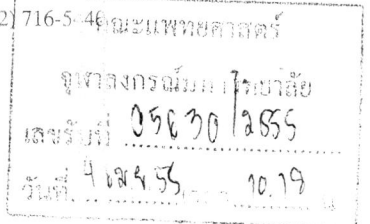 2) 716-5
คณะแพทยศาสตร์
จุฬาลงกรณ์มหาวิทยาลัย
เลขรับที่ 05630/2555
วันที่ 4 เม.ย 55 10.19 น